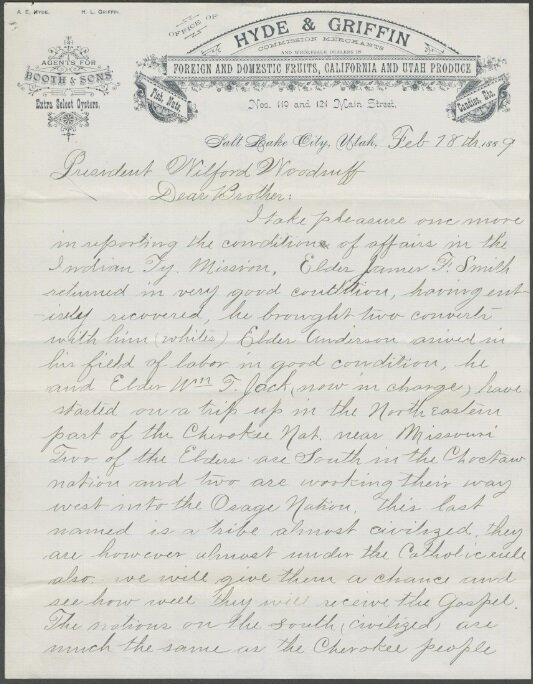 A. E. HYDE. H. L. GRIFFIN.
OFFICE OF
HYDE & GRIFFIN
COMMISSION MERCHANTS
AND WHOLESALE DEALERS IN
FOREIGN AND DOMESTIC FRUITS, CALIFORNIA AND UTAH PRODUCE
AGENTS FOR
BOOTH & SONS
Extra Select Oysters.
Fish, Nuts
Candies, Etc.
Nos. 119 and 121 Main Street.
Salt Lake City, Utah, Feb 18th, 1889
President Wilford Woodruff
Dear Brother:
I take pleasure one more
in reporting the condition of affairs in the
Indian Ty. Mission. Elder James F. Smith
returned in very good condition, having ent-
irely recovered, he brought two converts
with him (whites) Elder Anderson arived in
his field of labor in good condition, he
and Elder Wm T. Jack (now in charge) have
started on a trip up in the North Eastern
part of the Cherokee Nat. near Missouri
Two of the Elders are South in the Choctaw
nation and two are working their way
west into the Osage Nation. This last
named is a tribe almost civilized, they
are however almost under the Catholic rule
also. we will give them a chance and
see how well they will receive the Gospel.
The nations on the south (civilized) are
much the same as the Cherokee people